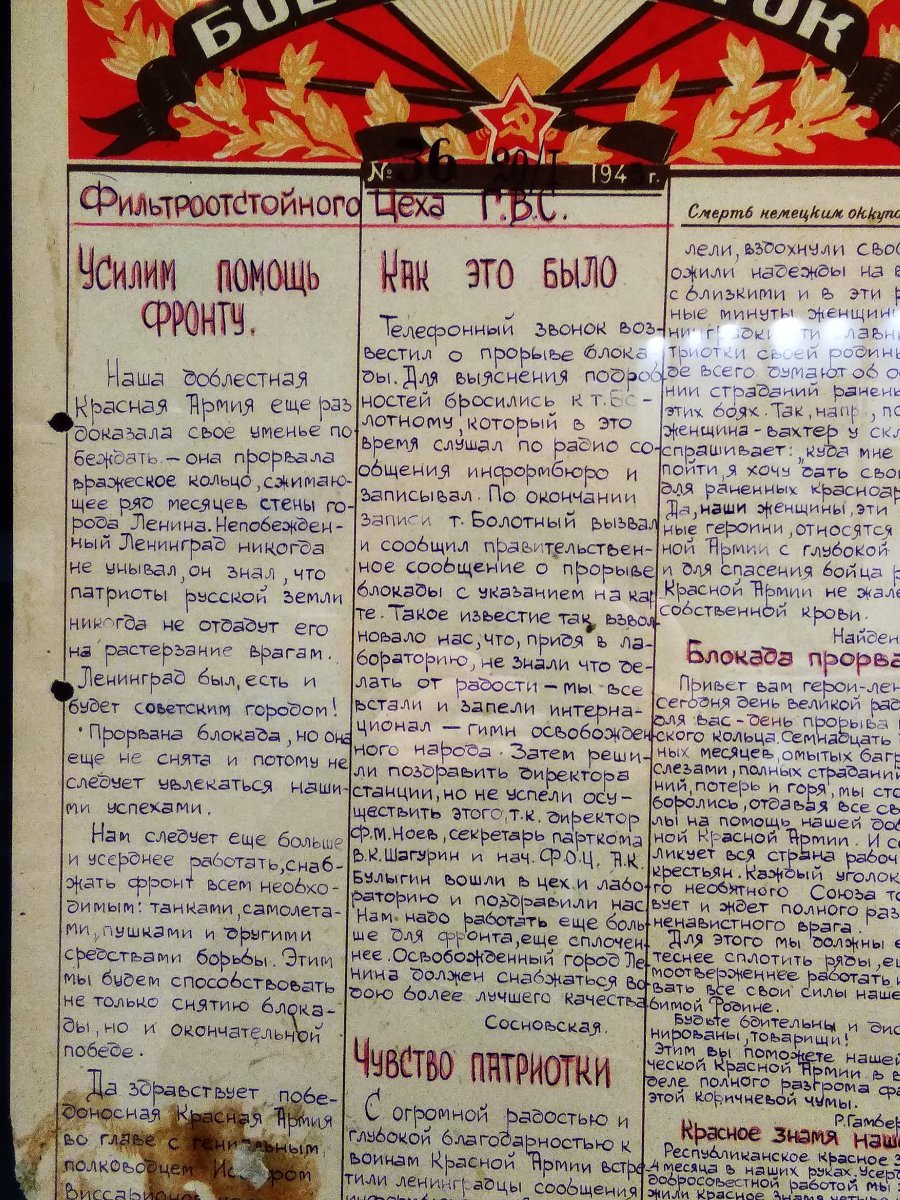 БОЕ
ОК
№ 36 20/I 194 г.
Фильтроотстойного Цеха Г.В.С.
Усилим помощь
фронту.
Наша доблестная
Красная Армия еще раз
доказала свое уменье по-
беждать – она прорвала
вражеское кольцо, сжимаю-
щее ряд месяцев стены го-
рода Ленина. Непобежден-
ный Ленинград никогда
не унывал, он знал, что
патриоты русской земли
никогда не отдадут его
на растерзание врагам.
Ленинград был, есть и
будет советским городом!
Прорвана блокада, но она
еще не снята и потому не
следует увлекаться наши-
ми успехами.
Нам следует еще больше
и усерднее работать, снаб-
жать фронт всем необхо-
димым: танками, самолета-
ми, пушками и другими
средствами борьбы. Этим
мы будем способствовать
не только снятию блока-
ды, но и окончательной
победе.
Да здравствует побе-
доносная Красная Армия
во главе с гениальным
полководцем Иосифом
Виссарионов
Как это было
Телефонный звонок воз-
вестил о прорыве блока-
ды. Для выяснения подроб-
ностей бросились к т. Бо-
лотному, который в это
время слушал по радио со-
общения информбюро и
записывал. По окончании
записи т. Болотный вызвал
и сообщил правительствен-
ное сообщение о прорыве
блокады с указанием на кар-
те. Такое известие так взвол-
новало нас, что, придя в ла-
бораторию, не знали что де-
лать от радости – мы все
встали и запели интерна-
ционал – гимн освобожден-
ного народа. Затем реши-
ли поздравить директора
станции, но не успели осу-
ществить этого, т.к. директор
Ф.М. Ноев, секретарь парткома
В.К. Шагурин и нач. Ф.О.Ц. А.К.
Булыгин вошли в цех и лабо-
раторию и поздравили нас.
Нам надо работать еще боль-
ше для фронта, еще сплочен-
нее. Освобожденный город Ле-
нина должен снабжаться во-
дою более лучшего качества
Сосновская.
Чувство патриотки
С огромной радостью и
глубокой благодарностью к
воинам Красной Армии встре-
тили ленинградцы сообщения
Смерть немецким оккупа
лели, вздохнули своб
ожили надежды на в
с близкими и в эти р
ные минуты женщины
триотки своей родины
де всего думают об о
нии страданий ранены
этих боях. Так, напр., по
женщина-вахтер у скл
спрашивает: "куда мне
пойти, я хочу дать сво
для раненных красноар
Да, наши женщины, эти
ные героини, относятся
ной Армии с глубокой
и для спасения бойца р
Красной Армии не жале
собственной крови.
Найден
Блокада прорва
Привет вам герои-лен
сегодня день великой рад
для вас – день прорыва
ского кольца. Семнадцать
ных месяцев, омытых багр
слезами, полных страданий
ний, потерь и горя, мы сто
боролись, отдавая все св
лы на помощь нашей доб
ной Красной Армии. И се
ликует вся страна рабоч
крестьян. Каждый уголок
го необятного Союза то
вует и ждет полного раз
ненавистного врага.
Для этого мы должны е
теснее сплотить ряды, ещ
моотверженнее работать и
вать все свои силы наше
бимой Родине.
Будьте бдительны и дис
нированы, товарищи!
Этим вы поможете нашей
ческой Красной Армии в в
деле полного разгрома фа
этой коричневой чумы.
Р. Гамбер
Красное знамя наше
Республиканское красное з
4 месяца в наших руках. Усерд
добросовестной работой мы
жили Красное Знамя